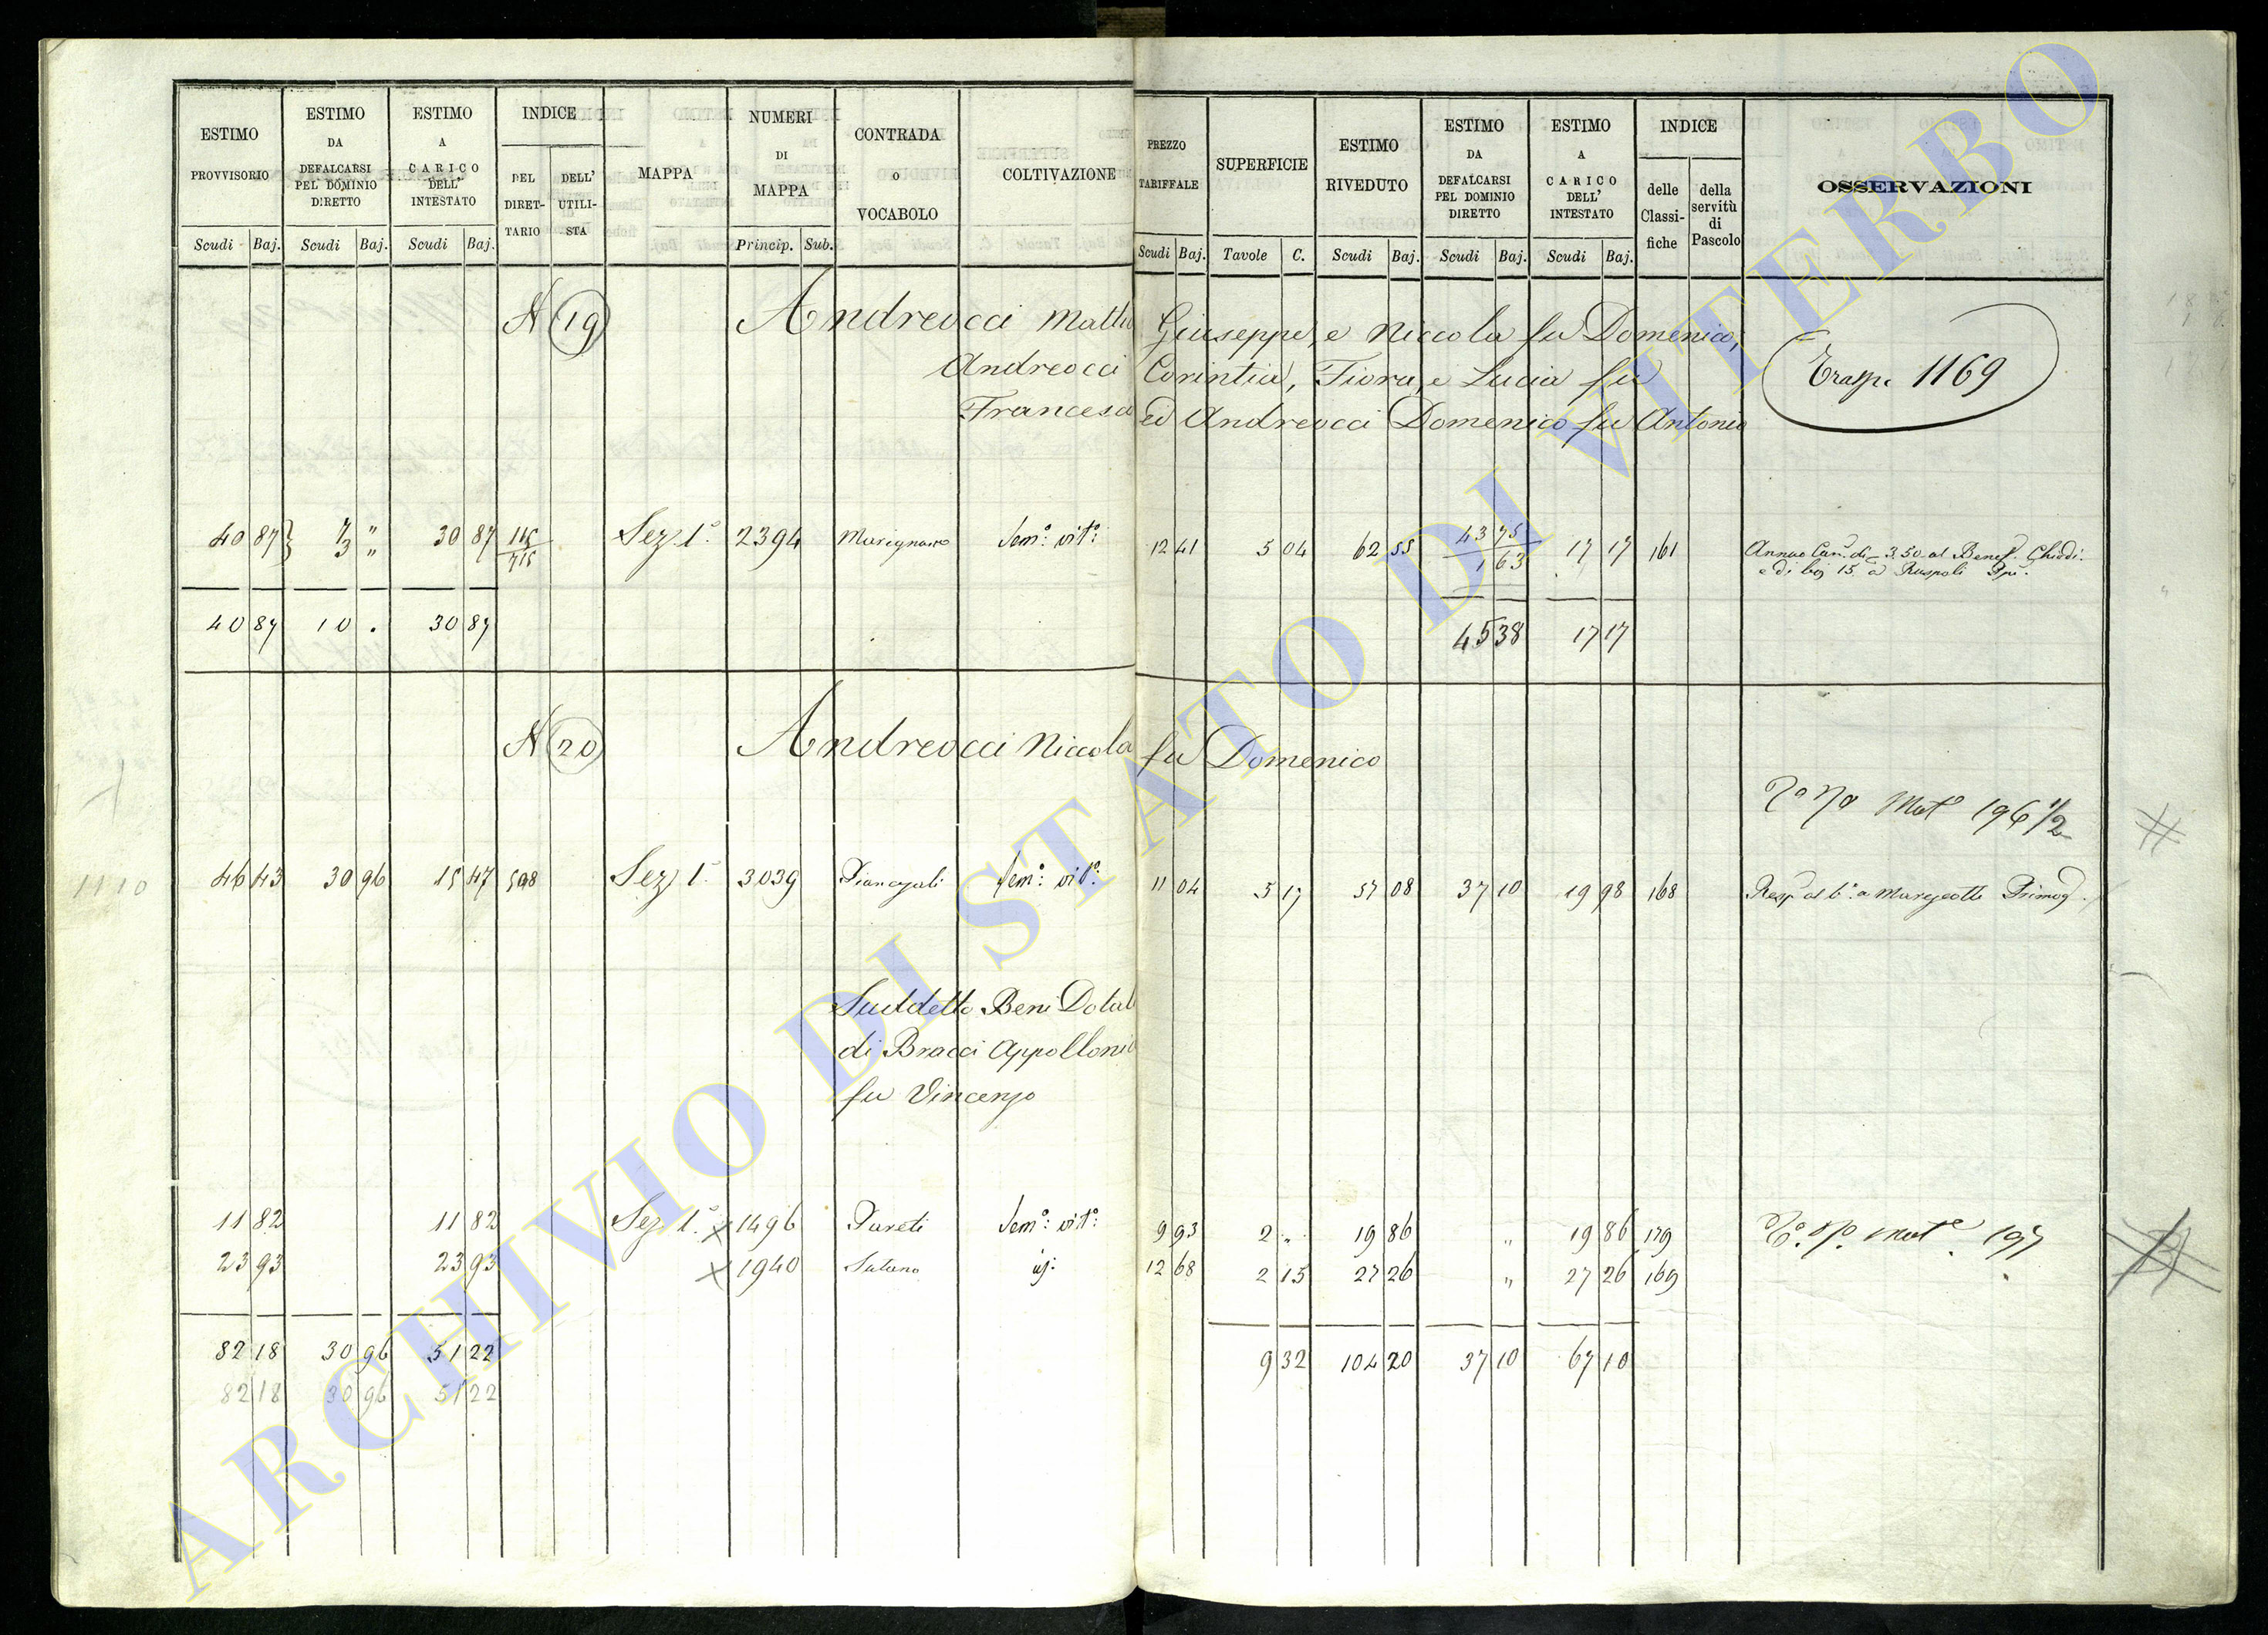 ESTIMO PROVVISORIO
Scudi Baj.
ESTIMO DA DEFALCARSI PEL DOMINIO DIRETTO
Scudi Baj.
ESTIMO A CARICO DELL' INTESTATO
Scudi Baj.
INDICE
DEL DIRET- TARIO
DELL' UTILI- STA
MAPPA
NUMERI DI MAPPA
Princip. Sub.
CONTRADA o VOCABOLO
COLTIVAZIONE
PREZZO TARIFFALE
Scudi Baj.
SUPERFICIE
Tavole C.
ESTIMO RIVEDUTO
Scudi Baj.
ESTIMO DA DEFALCARSI PEL DOMINIO DIRETTO
Scudi Baj.
ESTIMO A CARICO DELL' INTESTATO
Scudi Baj.
INDICE
delle Classi- fiche
della servitù di Pascolo
OSSERVAZIONI
N 19 Andreocci Giuseppe, e Niccola fu Domenico,
Andreocci Corintia, Fiora, e Lucia fu
Francesco ed Andreocci Domenico fu Antonio
1169
40 87 7 " 30 87 Sez. 1ª 2394 Sem.º vit.º 12 41 5 04 62 55 43 75 17 17 161
3 " 1 63
40 87 10 . 30 87 45 38 17 17
N 20 Andreocci Niccola fu Domenico
Mat.e 196 1/2
46 43 30 96 15 47 508 Sez. 1ª 3039 Sem.º vit.º 11 04 5 17 57 08 37 10 19 98 168
1110
Suddetto Beni Dotali
di Bracci Appollonia
fu Vincenzo
11 82 11 82 Sez. 1ª x 1496 Pareti Sem.º vit.º 9 93 2 " 19 86 " 19 86 179 mat.e 197
23 93 23 93 x 1940 12 68 2 15 27 26 " 27 26 169
82 18 30 96 51 22 9 32 104 20 37 10 67 10
82 18 30 96 51 22
ARCHIVIO DI STATO DI VITERBO